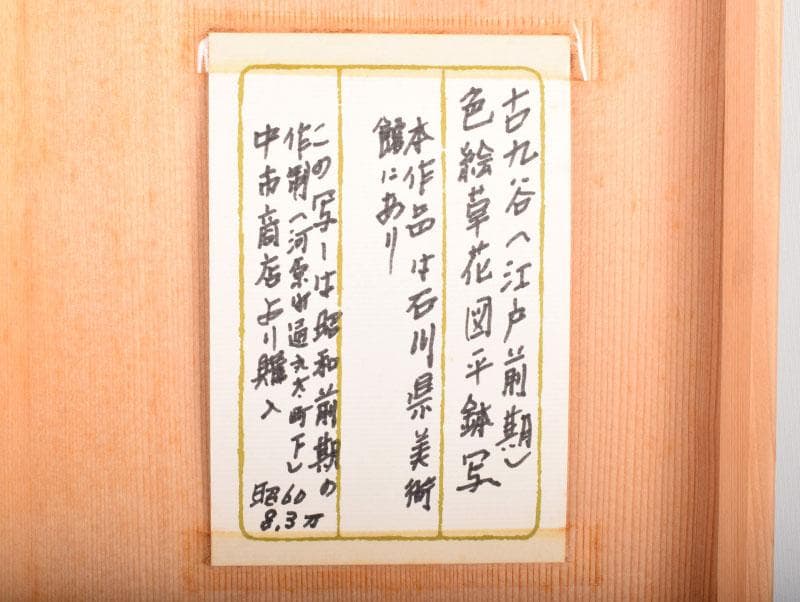 古九谷(江戸前期)
色絵草花図平鉢写
本作品は石川県美術
館にあり
この写しは昭和前期の
作制(河原町通丸太町下)
中市商店より購入
昭60
8.3万